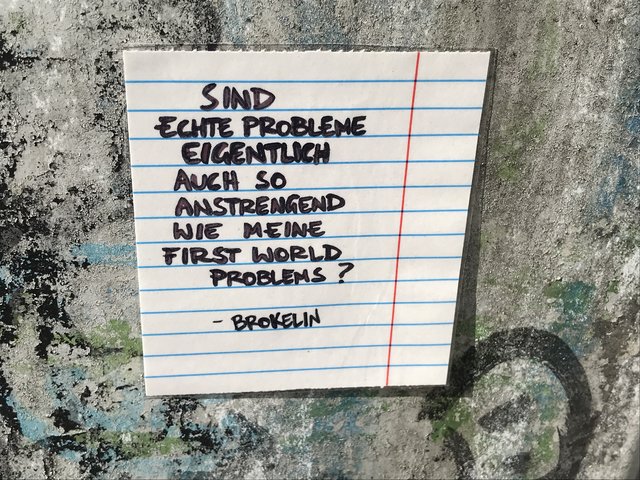 SIND
ECHTE PROBLEME
EIGENTLICH
AUCH SO
ANSTRENGEND
WIE MEINE
FIRST WORLD
PROBLEMS?
- BROKELIN